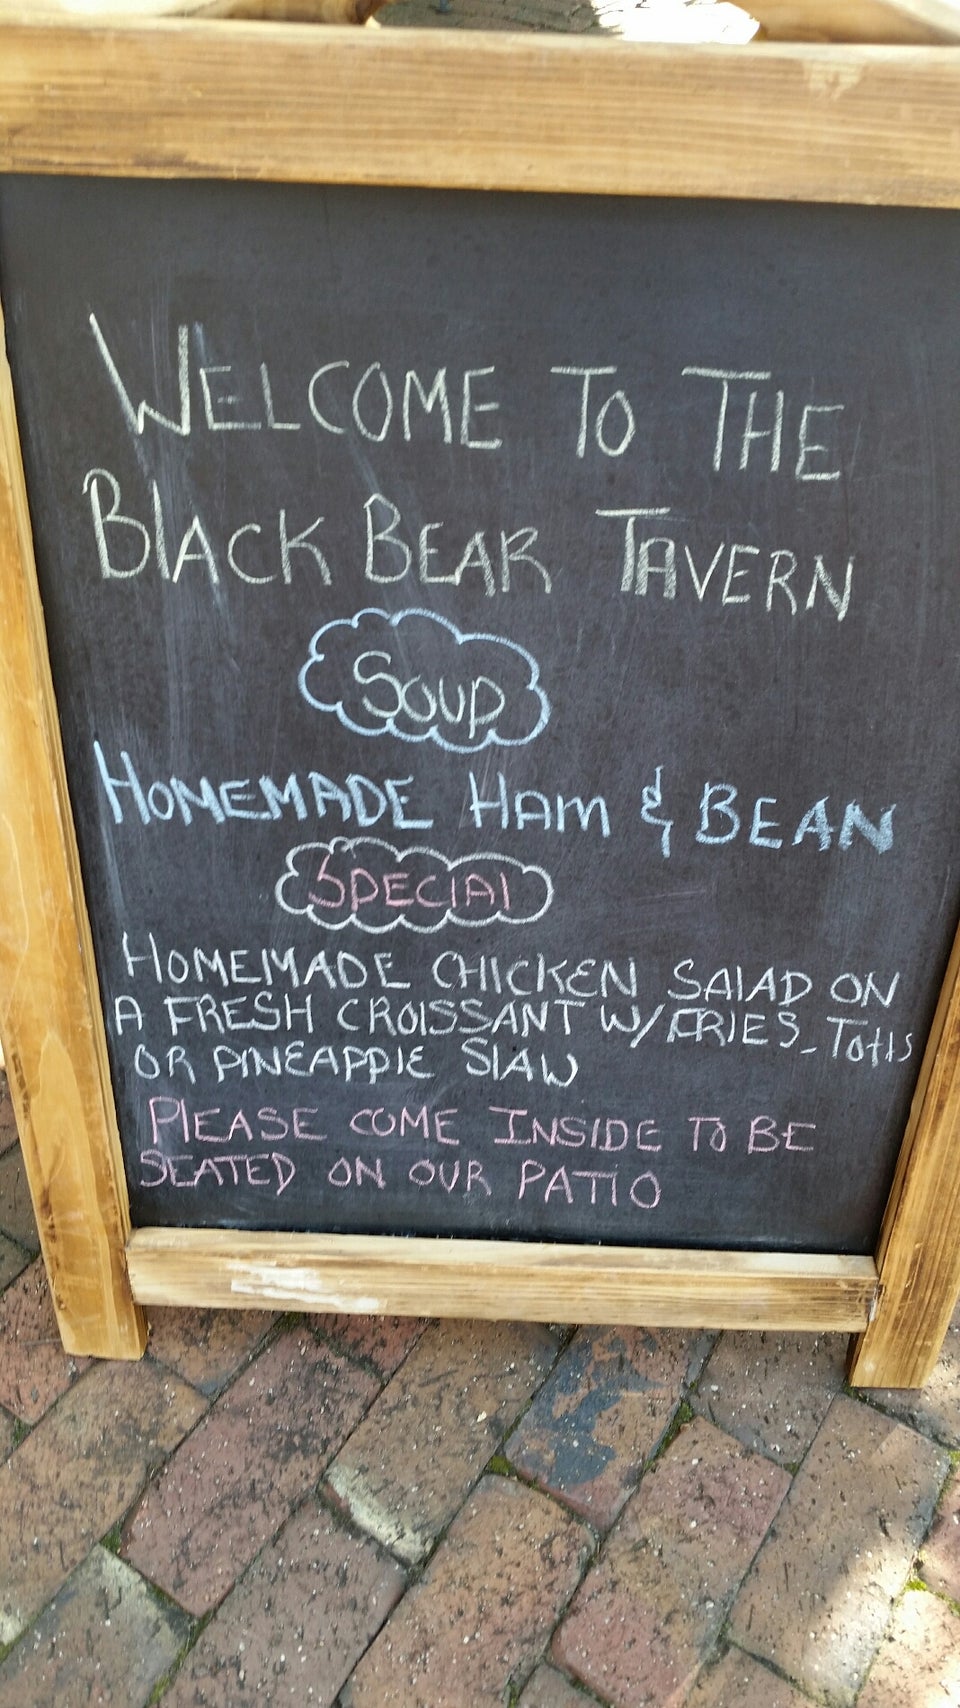 WELCOME TO THE
BLACK BEAR TAVERN
SOUP
HOMEMADE HAM & BEAN
SPECIAL
HOMEMADE CHICKEN SALAD ON
A FRESH CROISSANT W/FRIES, Totts
OR PINEAPPLE SLAW
PLEASE COME INSIDE TO BE
SEATED ON OUR PATIO